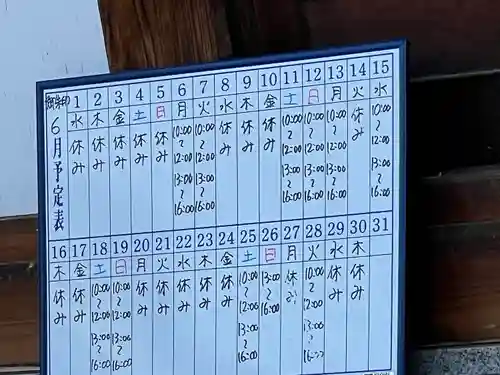 御朱印
6月予定表
1 2 3 4 5 6 7 8 9 10 11 12 13 14 15
水 木 金 土 日 月 火 水 木 金 土 日 月 火 水
休み
休み
休み
休み
休み
10:00~12:00 13:00~16:00
10:00~12:00 13:00~16:00
休み
休み
休み
10:00~12:00 13:00~16:00
10:00~12:00 13:00~16:00
10:00~12:00 13:00~16:00
休み
10:00~12:00 13:00~16:00
16 17 18 19 20 21 22 23 24 25 26 27 28 29 30 31
木 金 土 日 月 火 水 木 金 土 日 月 火 水 木
休み
休み
10:00~12:00 13:00~16:00
10:00~12:00 13:00~16:00
休み
休み
休み
休み
休み
10:00~12:00 13:00~16:00
13:00~16:00
休み
10:00~12:00 13:00~16:00
休み
休み